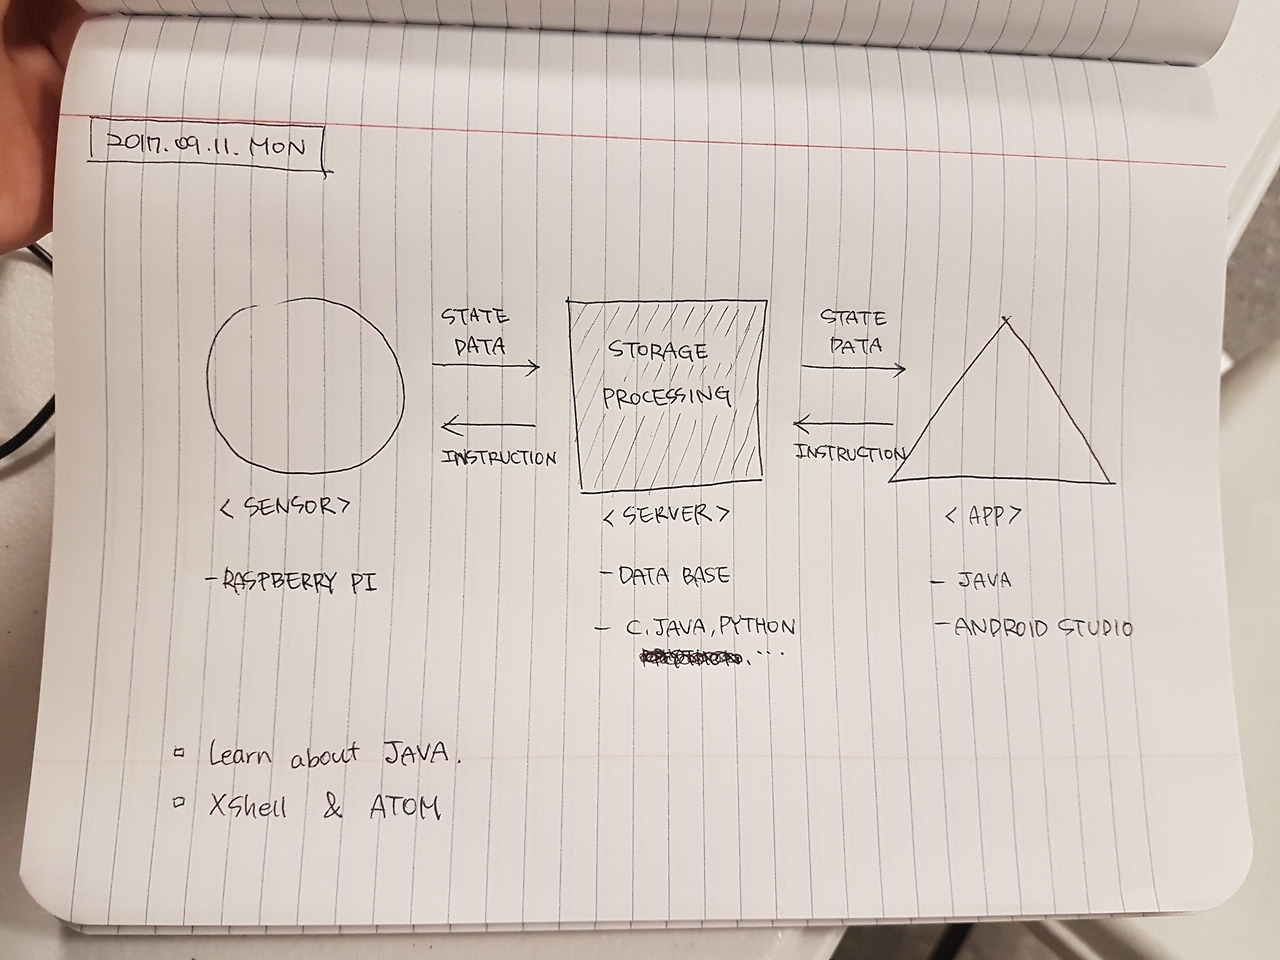 2017.09.11. MON
STATE
DATA
INSTRUCTION
STORAGE
PROCESSING
STATE
DATA
INSTRUCTION
< SENSOR >
< SERVER >
< APP >
- RASPBERRY PI
- DATA BASE
- C, JAVA, PYTHON
...
- JAVA
- ANDROID STUDIO
▫ Learn about JAVA.
▫ XShell & ATOM